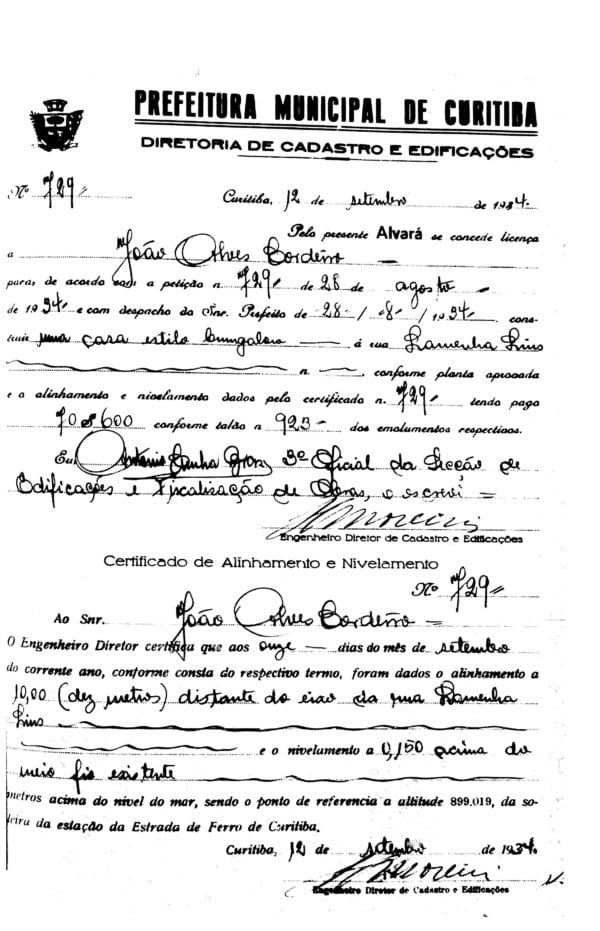 PREFEITURA MUNICIPAL DE CURITIBA
DIRETORIA DE CADASTRO E EDIFICAÇÕES
Nº 729=
Curitiba, 12 de setembro de 1934.
Pelo presente Alvará se concede licença
a João Alves Cordeiro —
para, de acordo com a petição n. 729- de 28 de agosto -
de 1934- e com despacho do Snr. Prefeito de 28-/-8-/1934- cons-
truir uma casa estilo bungalow — á rua Lamenha Lins
n. —, conforme planta aprovada
e o alinhamento e nivelamento dados pelo certificado n. 729- tendo pago
70$600 conforme talão n 923- dos emolumentos respectivos.
Eu, Antonio Cunha 3º Oficial da Secção de
Edificações e Fiscalização de Obras, o escrevi =
Engenheiro Diretor de Cadastro e Edificações
Certificado de Alinhamento e Nivelamento
Nº 729=
Ao Snr. João Alves Cordeiro =
O Engenheiro Diretor certifica que aos onze — dias do mês de setembro
do corrente ano, conforme consta do respectivo termo, foram dados o alinhamento a
10,00 (dez metros) distante do eixo da rua Lamenha
Lins
e o nivelamento a 0,150 acima do
meio fio existente
metros acima do nivel do mar, sendo o ponto de referencia a altitude 899,019, da so-
leira da estação da Estrada de Ferro de Curitiba.
Curitiba, 12 de setembro de 1934.
Engenheiro Diretor de Cadastro e Edificações